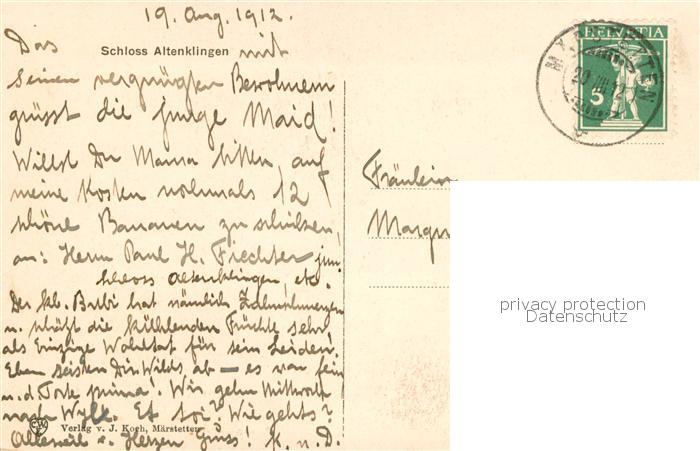 19. Aug. 1912.
Das Schloss Altenklingen mit
seinen vergnügten Bewohnern
grüsst die junge Maid!
Willst Du Mama bitten, auf
meine Kosten nochmals 12
schöne Bananen zu schicken,
an: Herrn Paul H. Fiechter jun.
Schloss Altenklingen, etc.
Der kl. Bubi hat nämlich Zahnschmerzen
u. schätzt die kühlenden Früchte sehr
als Einzige Wohltat für sein Leiden.
Eben Dir Wilds ab – es war fein
u. d. Torte prima! Wir gehn Mittwoch
nach Et toi? Wie gehts?
Verlag v. J. Koch, Märstetten
Alleweil e. Herzen Gruss! K. u. D.
HELVETIA
5
20 VIII 12
Fräulein
Margu
privacy protection
Datenschutz